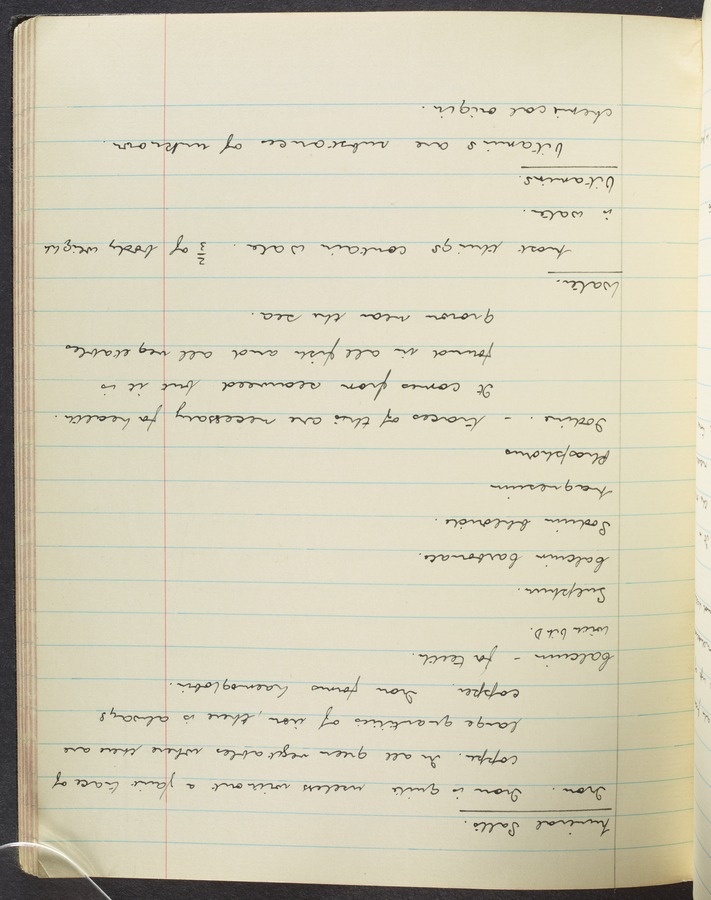 Mineral Salts.
Iron. Iron is quite useless without a faint trace of
copper. In all green vegetables where there are
large quantities of iron, there is always
copper. Iron forms haemoglobin.
Calcium - for teeth.
with Vit D.
Sulphur.
Calcium Carbonate.
Sodium Chloride.
Magnesium
Phosphorus
Iodine. - traces of this are necessary for health.
It comes from seaweed but it is
found in all fish and all vegetables
grown near the sea.
Water.
Most things contain water. 2/3 of body weight
is water.
Vitamins.
Vitamins are substances of unknown
chemical origin.